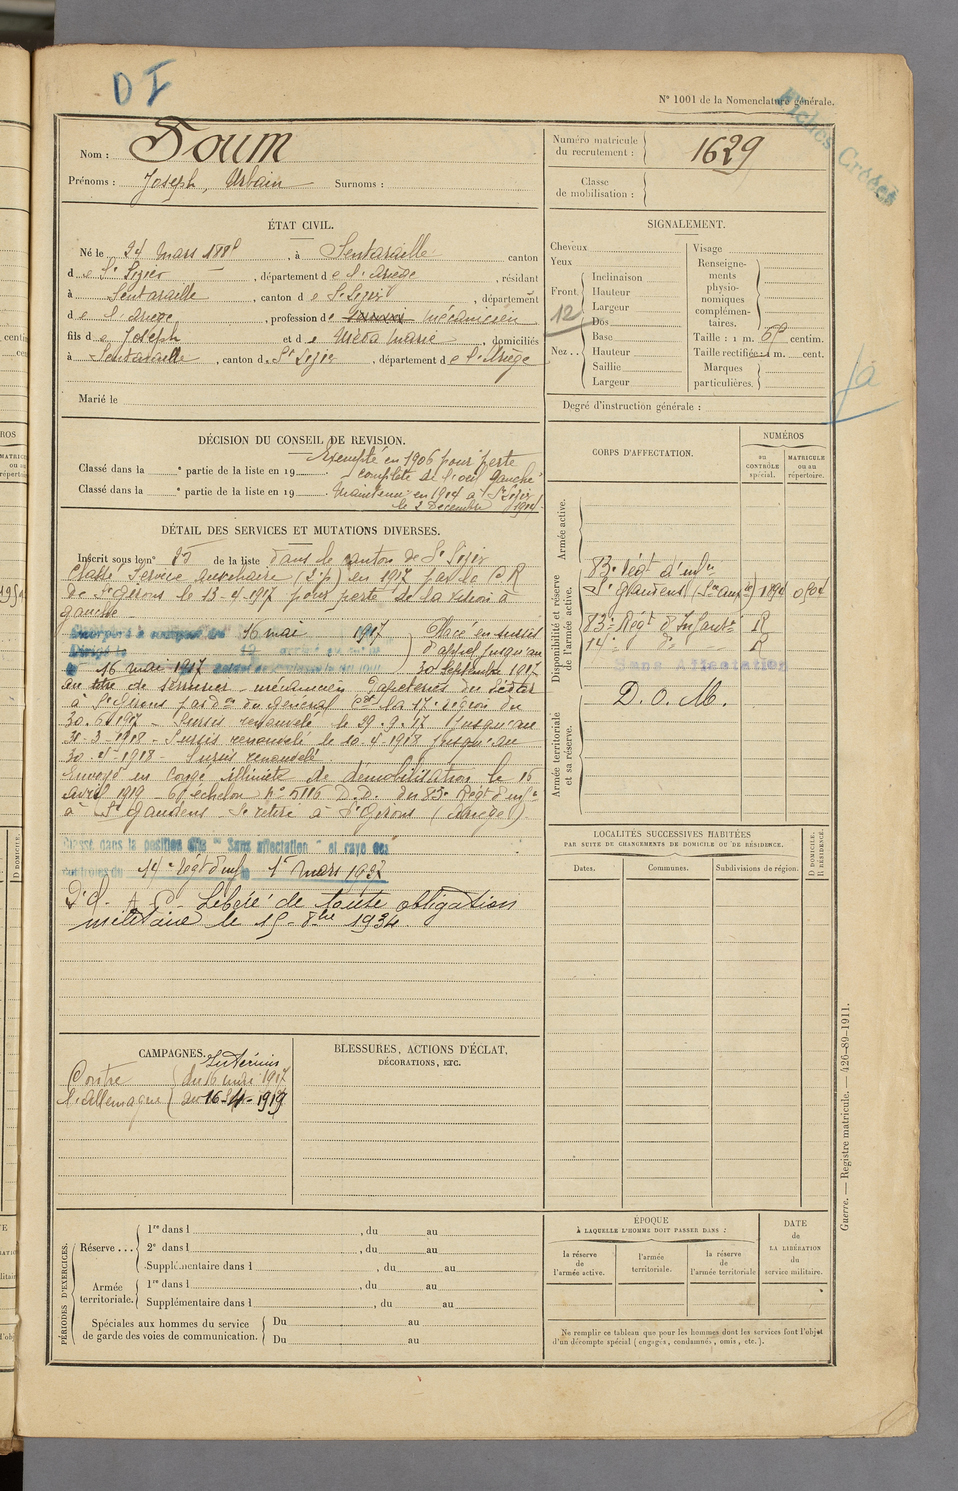 D I
N° 1001 de la Nomenclature générale.
Fiches Créées
Nom : Soum
Prénoms : Joseph, Urbain Surnoms :
Numéro matricule du recrutement : 1629
Classe de mobilisation :
ÉTAT CIVIL.
Né le 24 Mars , à Sentaraille canton
d e St Lizier , département d e l'Ariège , résidant
à Sentaraille , canton d e St Lizier , département
d e l'Ariège , profession d e Mécanicien
fils d e Joseph et d e Marie , domiciliés
à Sentaraille , canton d e St Lizier , département d e l'Ariège
Marié le
SIGNALEMENT.
Cheveux
Yeux
Front.
Inclinaison
Hauteur
Largeur
12
Nez . .
Dos
Base
Hauteur
Saillie
Largeur
Visage
Renseigne-
ments
physio-
nomiques
complémen-
taires.
Taille : 1 m. centim.
Taille rectifiée : 1 m. cent.
Marques
particulières.
Degré d'instruction générale :
DÉCISION DU CONSEIL DE REVISION.
Exempté en 1906 pour perte
Classé dans la e partie de la liste en 19 complète de l'œil gauche
Classé dans la e partie de la liste en 19 Maintenu en 1914 à St Lizier
le 2 Décembre 1914
DÉTAIL DES SERVICES ET MUTATIONS DIVERSES.
Inscrit sous le n° de la liste dans le canton de St Lizier
Classé Service Auxiliaire en 1917 par la C R
de St Girons le 13-4-1917 pour perte de la vision à
gauche
Incorporé à compter du 16 mai 1917
Dirigé le
16 mai 1917
Placé en sursis
d'appel jusqu'au
30 Septembre 1917
au titre de serrurier - mécanicien Papeteries du
à St Girons par du Général Ct la 17e région du
Sursis renouvelé le 29.9.17 jusqu'au
31-3-1918 - Sursis renouvelé le 10-4-1918 jusqu'au
Sursis renouvelé
Envoyé en congé illimité de démobilisation le 16
Avril 1919 6e échelon N° 5116 D.D. du 83e Régt d'infie
à St Gaudens - Se retire à St Girons (Ariège).
Classé dans la position dite " Sans affectation " et rayé des
contrôles du 14e Régt d'inf le 1er Mars 1927
Libéré de toute obligation
militaire le 15-8bre 1934.
CORPS D'AFFECTATION.
NUMÉROS
au
CONTRÔLE
spécial.
MATRICULE
ou au
répertoire.
Armée active.
Disponibilité et réserve
de l'armée active.
Armée territoriale
et sa réserve.
83e Régt d'infie
St Gaudens
83e Régt d'Infante R
14e do R
Sans Affectation
D. O. M.
LOCALITÉS SUCCESSIVES HABITÉES
PAR SUITE DE CHANGEMENTS DE DOMICILE OU DE RÉSIDENCE.
Dates.
Communes.
Subdivisions de région.
D DOMICILE.
R RÉSIDENCE.
CAMPAGNES.
Contre
l'Allemagne
Intérieur
du 16 mai 1917
au 16-4-1919
BLESSURES, ACTIONS D'ÉCLAT,
DÉCORATIONS, ETC.
PÉRIODES D'EXERCICES.
Réserve . . .
1re dans l , du au
2e dans l , du au
Supplémentaire dans l , du au
Armée
territoriale.
1re dans l , du au
Supplémentaire dans l , du au
Spéciales aux hommes du service
de garde des voies de communication.
Du au
Du au
ÉPOQUE
À LAQUELLE L'HOMME DOIT PASSER DANS :
la réserve
de
l'armée active.
l'armée
territoriale.
la réserve
de
l'armée territoriale
DATE
de
LA LIBÉRATION
du
service militaire.
Ne remplir ce tableau que pour les hommes dont les services font l'objet
d'un décompte spécial ( engagés, condamnés, omis, etc. ).
Guerre. — Registre matricule. — 426-89-1911.